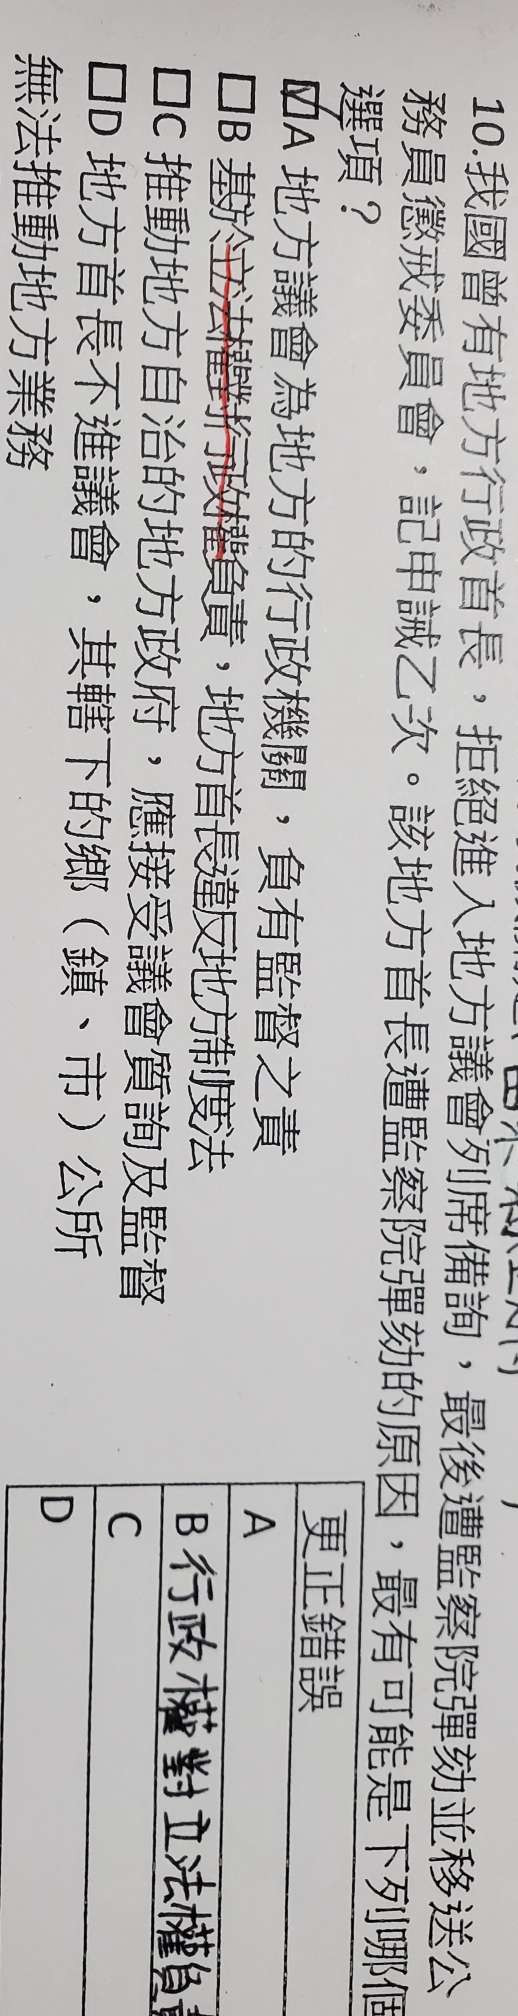 10.我國曾有地方行政首長，拒絕進入地方議會列席備詢，最後遭監察院彈劾並移送公
務員懲戒委員會，記申誡乙次。該地方首長遭監察院彈劾的原因，最有可能是下列哪個
選項？
☑A 地方議會為地方的行政機關，負有監督之責
□B 基於立法權對行政權負責，地方首長違反地方制度法
□C 推動地方自治的地方政府，應接受議會質詢及監督
□D 地方首長不進議會，其轄下的鄉（鎮、市）公所
無法推動地方業務
更正錯誤
A
B 行政權對立法權負責
C
D